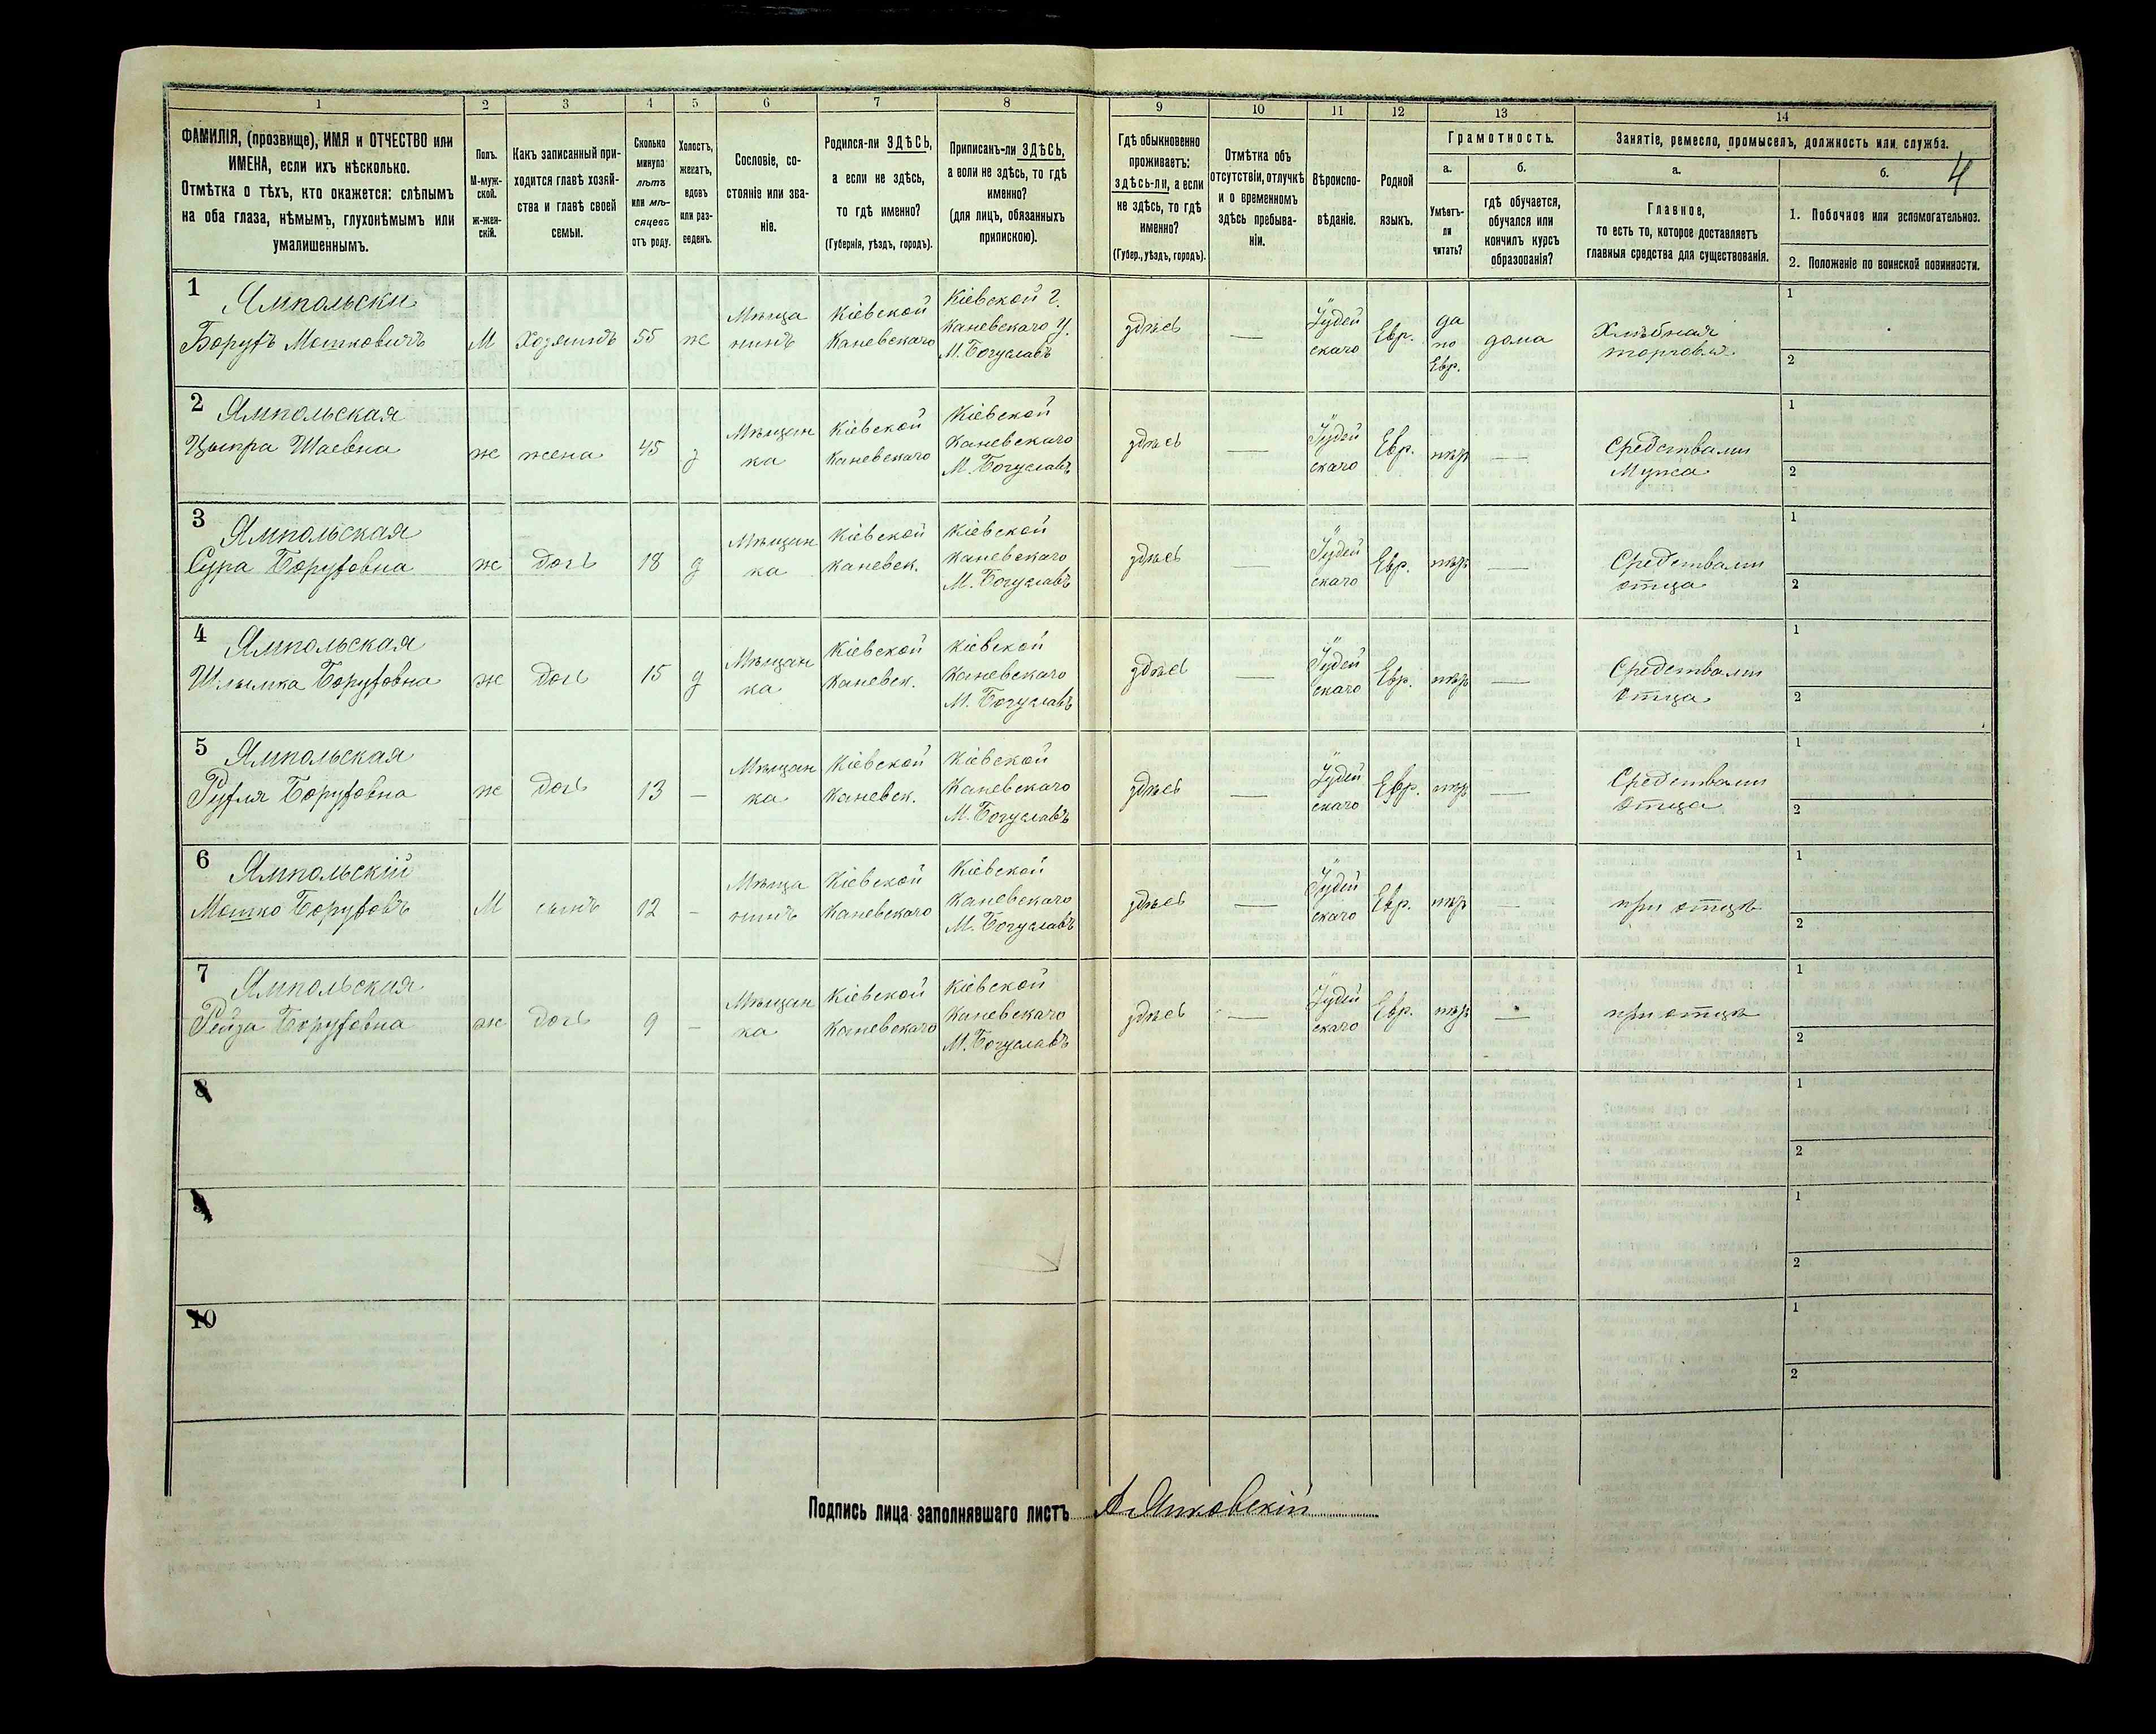 1 2 3 4 5 6 7 8 9 10 11 12 13 14
ФАМИЛІЯ, (прозвище), ИМЯ и ОТЧЕСТВО или
ИМЕНА, если ихъ нѣсколько.
Отмѣтка о тѣхъ, кто окажется: слѣпымъ
на оба глаза, нѣмымъ, глухонѣмымъ или
умалишеннымъ.
Полъ.
М-муж-
ской.
ж-жен-
скій.
Какъ записанный при-
ходится главѣ хозяй-
ства и главѣ своей
семьи.
Сколько
минуло
лѣтъ
или мѣ-
сяцевъ
отъ роду.
Холостъ,
женатъ,
вдовъ
или раз-
веденъ.
Сословіе, со-
стояніе или зва-
ніе.
Родился-ли ЗДѢСЬ,
а если не здѣсь,
то гдѣ именно?
(Губернія, уѣздъ, городъ).
Приписанъ-ли ЗДѢСЬ,
а если не здѣсь, то гдѣ
именно?
(для лицъ, обязанныхъ
припискою).
Гдѣ обыкновенно
проживаетъ:
здѣсь-ли, а если
не здѣсь, то гдѣ
именно?
(Губер., уѣздъ, городъ).
Отмѣтка объ
отсутствіи, отлучкѣ
и о временномъ
здѣсь пребыва-
ніи.
Вѣроиспо-
вѣданіе.
Родной
языкъ.
Грамотность.
а.
Умѣетъ-
ли
читать?
б.
гдѣ обучается,
обучался или
кончилъ курсъ
образованія?
Занятіе, ремесло, промыселъ, должность или служба.
а.
Главное,
то есть то, которое доставляетъ
главныя средства для существованія.
б.
4
1. Побочное или вспомогательное.
2. Положеніе по воинской повинности.
1
Ямпольски
Борухъ Мошковичъ
М
Хозяинъ
55
ж
Мѣща
нинъ
Кіевской
Каневскаго
Кіевской г.
Каневскаго У.
М. Богуславъ
здѣсь
—
Іудей
скаго
Евр.
да
по
Евр.
дома
Хлѣбная
торговля
1
2
2
Ямпольская
Цыпра Шаевна
ж
жена
45
з
Мѣщан
ка
Кіевской
Каневскаго
Кіевской
Каневскаго
М. Богуславъ
здѣсь
—
Іудей
скаго
Евр.
нѣт
—
Средствами
Мужа
1
2
3
Ямпольская
Сура Боруховна
ж
дочь
18
д
Мѣщан
ка
Кіевской
Каневск.
Кіевской
Каневскаго
М. Богуславъ
здѣсь
—
Іудей
скаго
Евр.
нѣт
—
Средствами
отца
1
2
4
Ямпольская
Шлымка Боруховна
ж
дочь
15
д
Мѣщан
ка
Кіевской
Каневск.
Кіевской
Каневскаго
М. Богуславъ
здѣсь
—
Іудей
скаго
Евр.
нѣт
—
Средствами
Отца
1
2
5
Ямпольская
Рухля Боруховна
ж
дочь
13
—
Мѣщан
ка
Кіевской
Каневск.
Кіевской
Каневскаго
М. Богуславъ
здѣсь
—
Іудей
скаго
Евр.
нѣт
—
Средствами
Отца
1
2
6
Ямпольскій
Мошко Боруховъ
М
сынъ
12
—
Мѣща
нинъ
Кіевской
Каневскаго
Кіевской
Каневскаго
М. Богуславъ
здѣсь
—
Іудей
скаго
Евр.
нѣт
—
при отцѣ
1
2
7
Ямпольская
Рейза Боруховна
ж
дочь
9
—
Мѣщан
ка
Кіевской
Каневскаго
Кіевской
Каневскаго
М. Богуславъ
здѣсь
—
Іудей
скаго
Евр.
нѣт
—
при отцѣ
1
2
8
1
2
9
1
2
10
1
2
Подпись лица заполнявшаго листъ